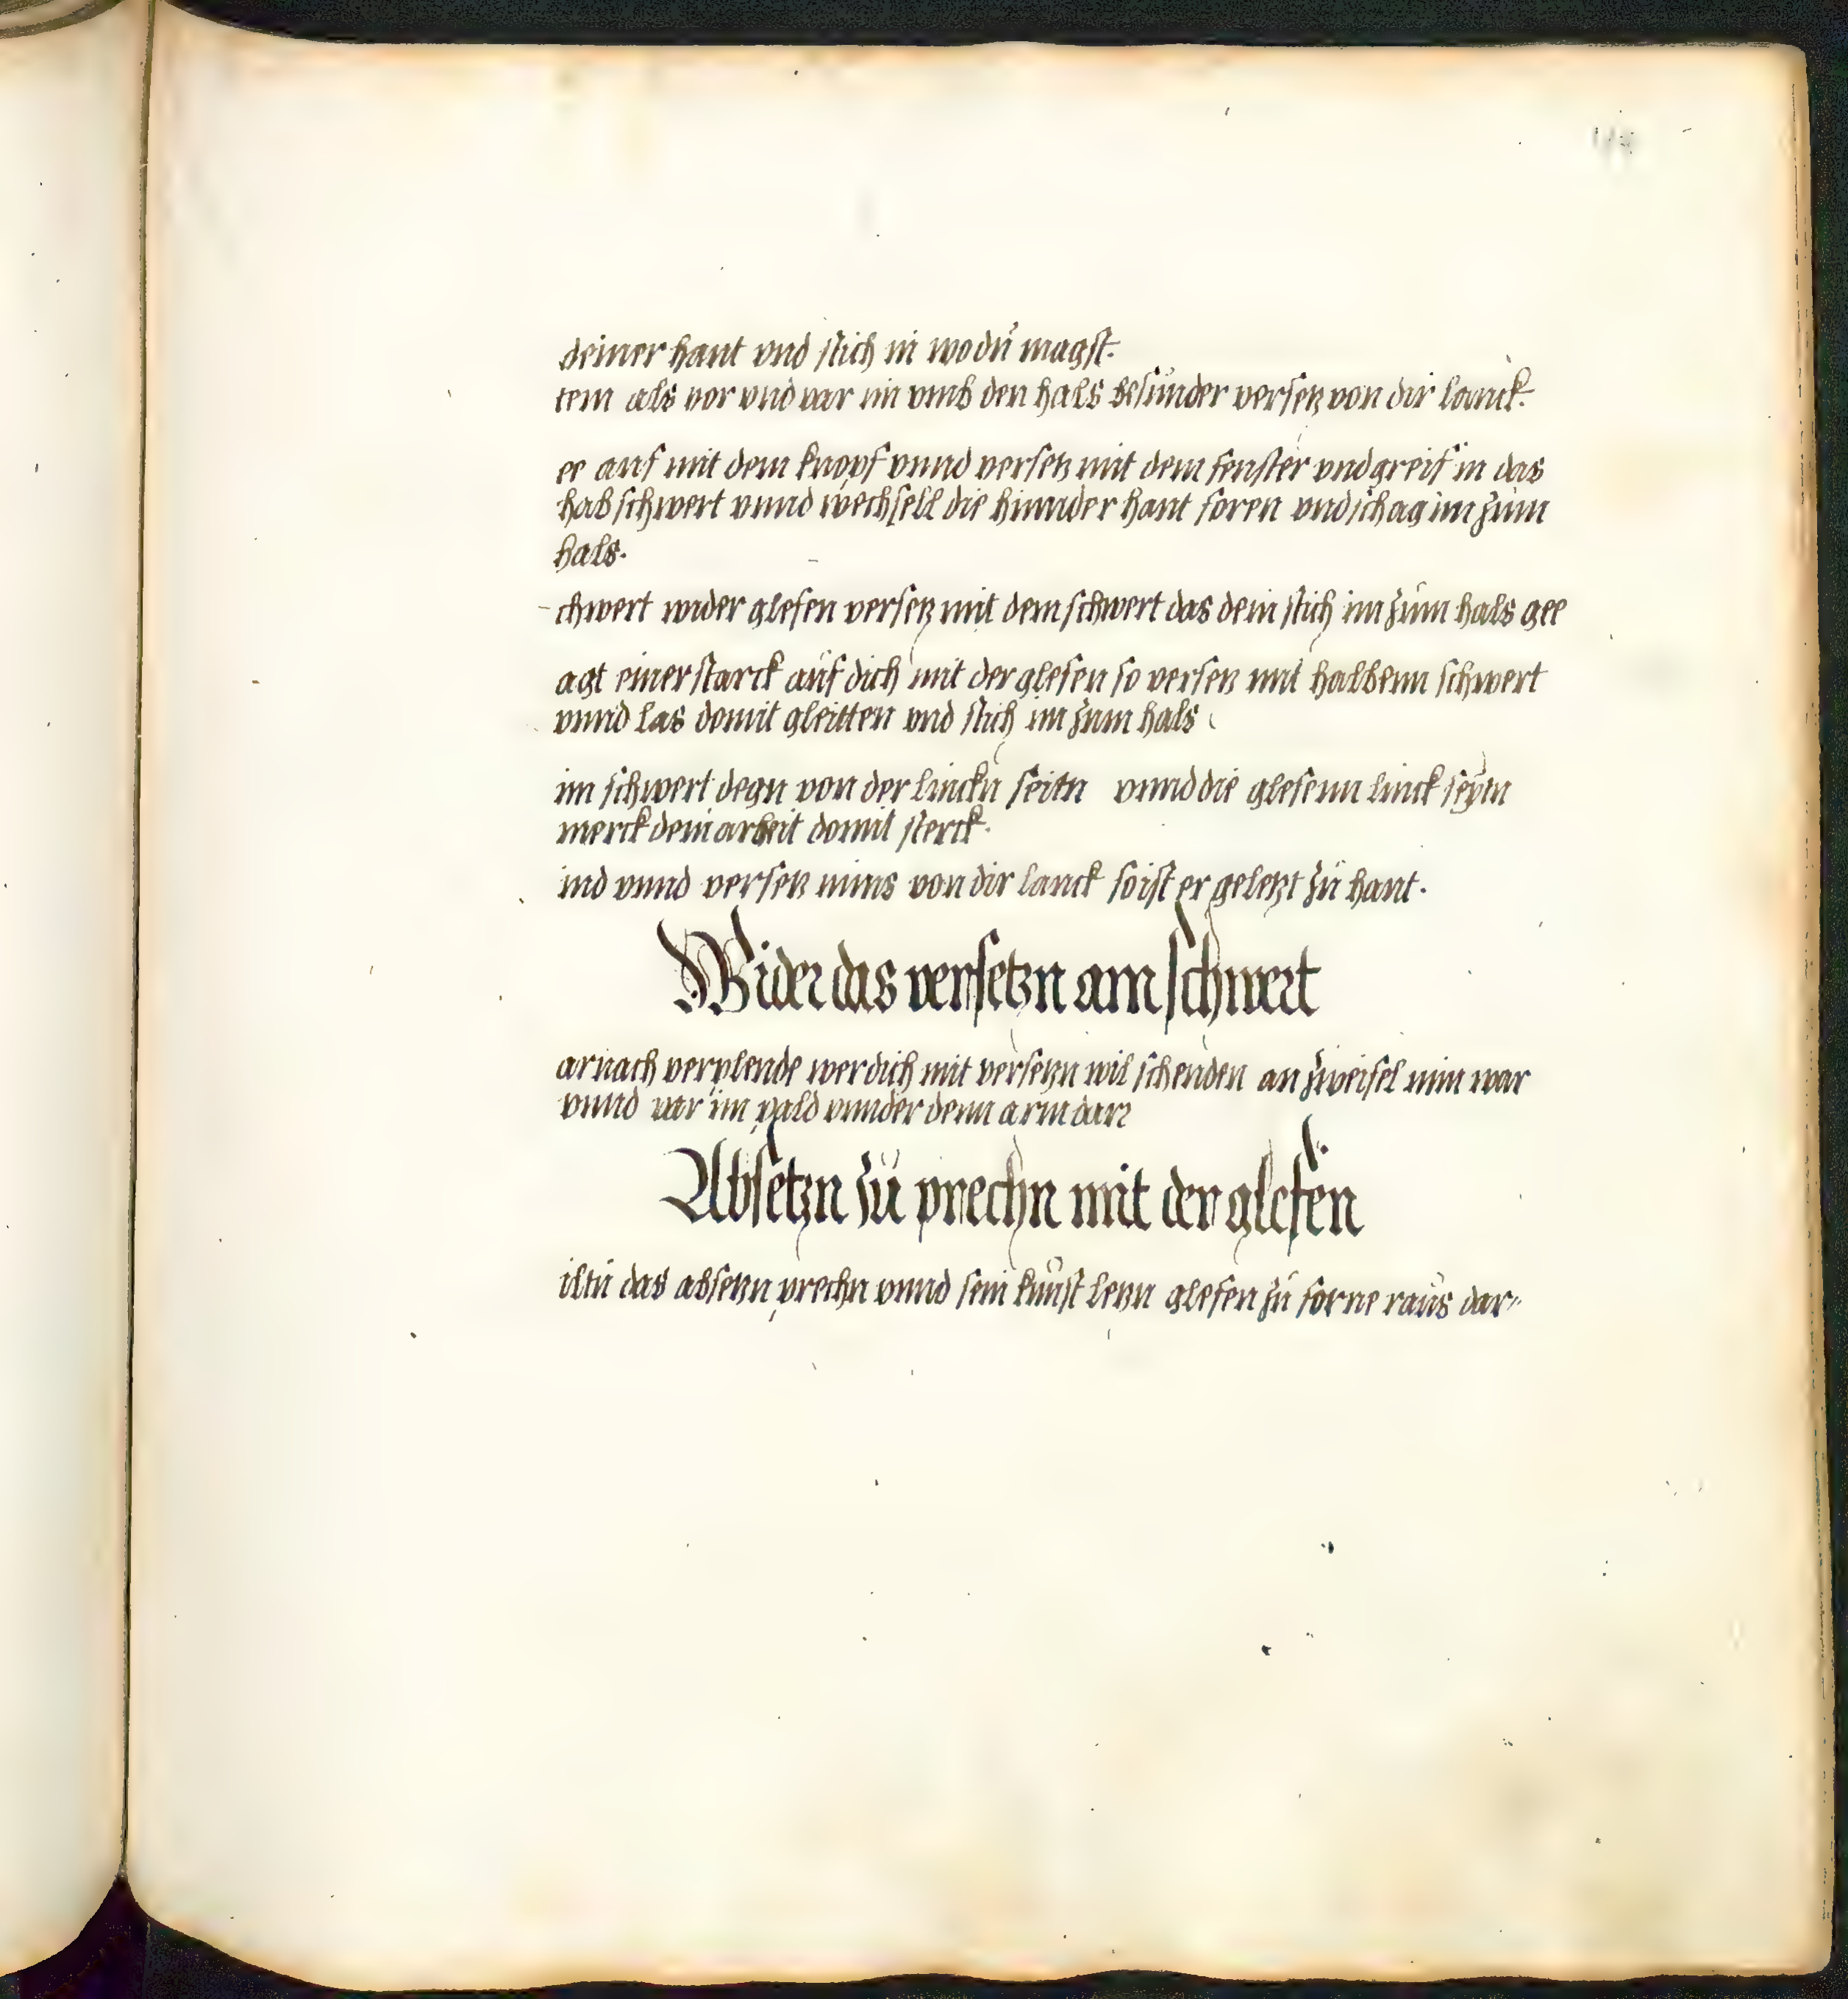 deiner hant vnd stich in wo du magst.
tem als vor vnd var im vmb den hals besunder versetz von dir lanck.
ee auf mit dem knopf vnnd versetz mit dem fenster vnd greif in das
hab schwert vnnd wechsell die hinnder hant foren vnd schag im zum
hals.
chwert wider glefen versetz mit dem schwert das dein stich im zum hals gee
agt einer starck auf dich mit der glefen so versetz mit halbenn schwert
vnnd las domit gleitten vnd stich im zum hals
im schwert degn von der linckn seitn vnnd die glefenn linck seytn
merck dein arbeit domit sterck.
ind vnnd versetz nims von dir lanck so ist er geletzt zu hant.
Wider das versetzn am schwert
arnach verplende wer dich mit versetzn wil schenden an zweifel nim war
vnnd var im pald vnnder denn arm dar
Absetzn zu prechn mit der glefen
iltu das absetzn prechn vnnd sein kunst letzn glefen zu forne raus dar